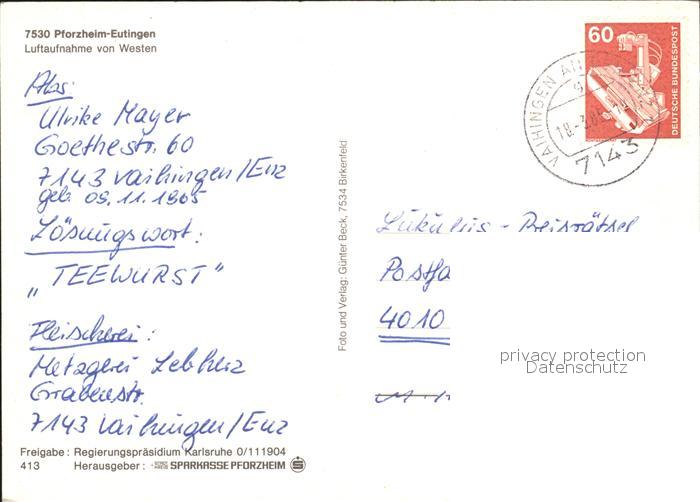 7530 Pforzheim-Eutingen
Luftaufnahme von Westen
Abs:
Ulrike Mayer
Goethestr. 60
7143 Vaihingen/Enz
geb. 09.11.1965
Lösungswort:
„TEEWURST"
Fleischerei:
Metzgerei Lebherz
Grabenstr.
7143 Vaihingen/Enz
Freigabe: Regierungspräsidium Karlsruhe 0/111904
413 Herausgeber: SPARKASSE PFORZHEIM
Foto und Verlag: Günter Beck, 7534 Birkenfeld
60
DEUTSCHE BUNDESPOST
VAIHINGEN AN
7143
Lukullus - Preisrätsel
Postfa
4010
privacy protection
Datenschutz